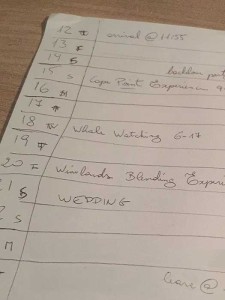 12 T arrival @ 1155
13 F
14 S
15 S Cape Point Experience
16 M
17 T
18 W Whale Watching 6-17
19 T
20 F Winelands Blending Experi
21 S WEDDING
2 S
M
leave @